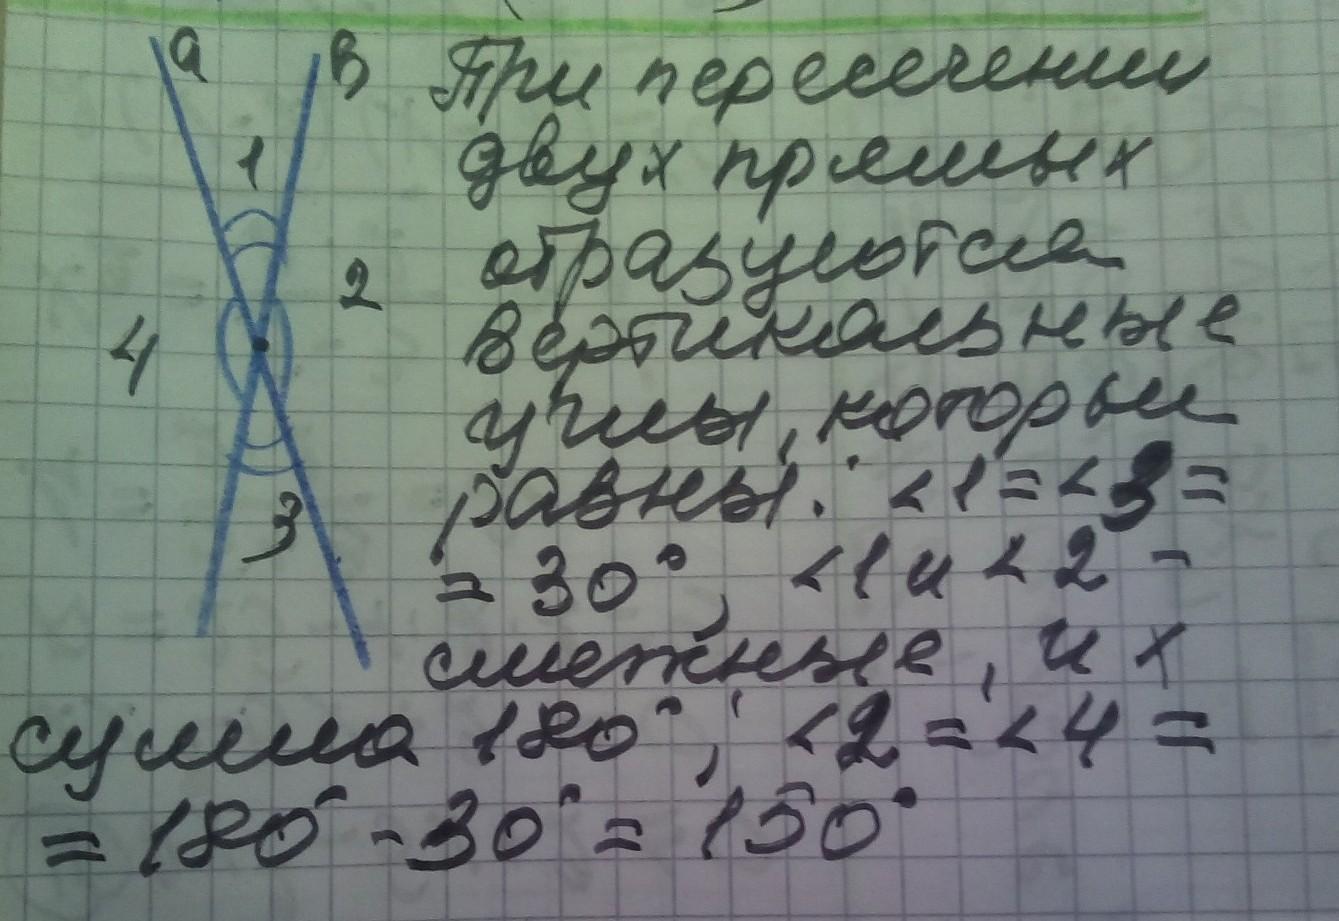 a
в
При пересечении
1
двух прямых
образуются
2
вертикальные
4
углы, которые
равны: <1=<3=
3
=30°, <1 и <2 -
смежные, их
сумма 180°, <2=<4=
=180°-30°=150°